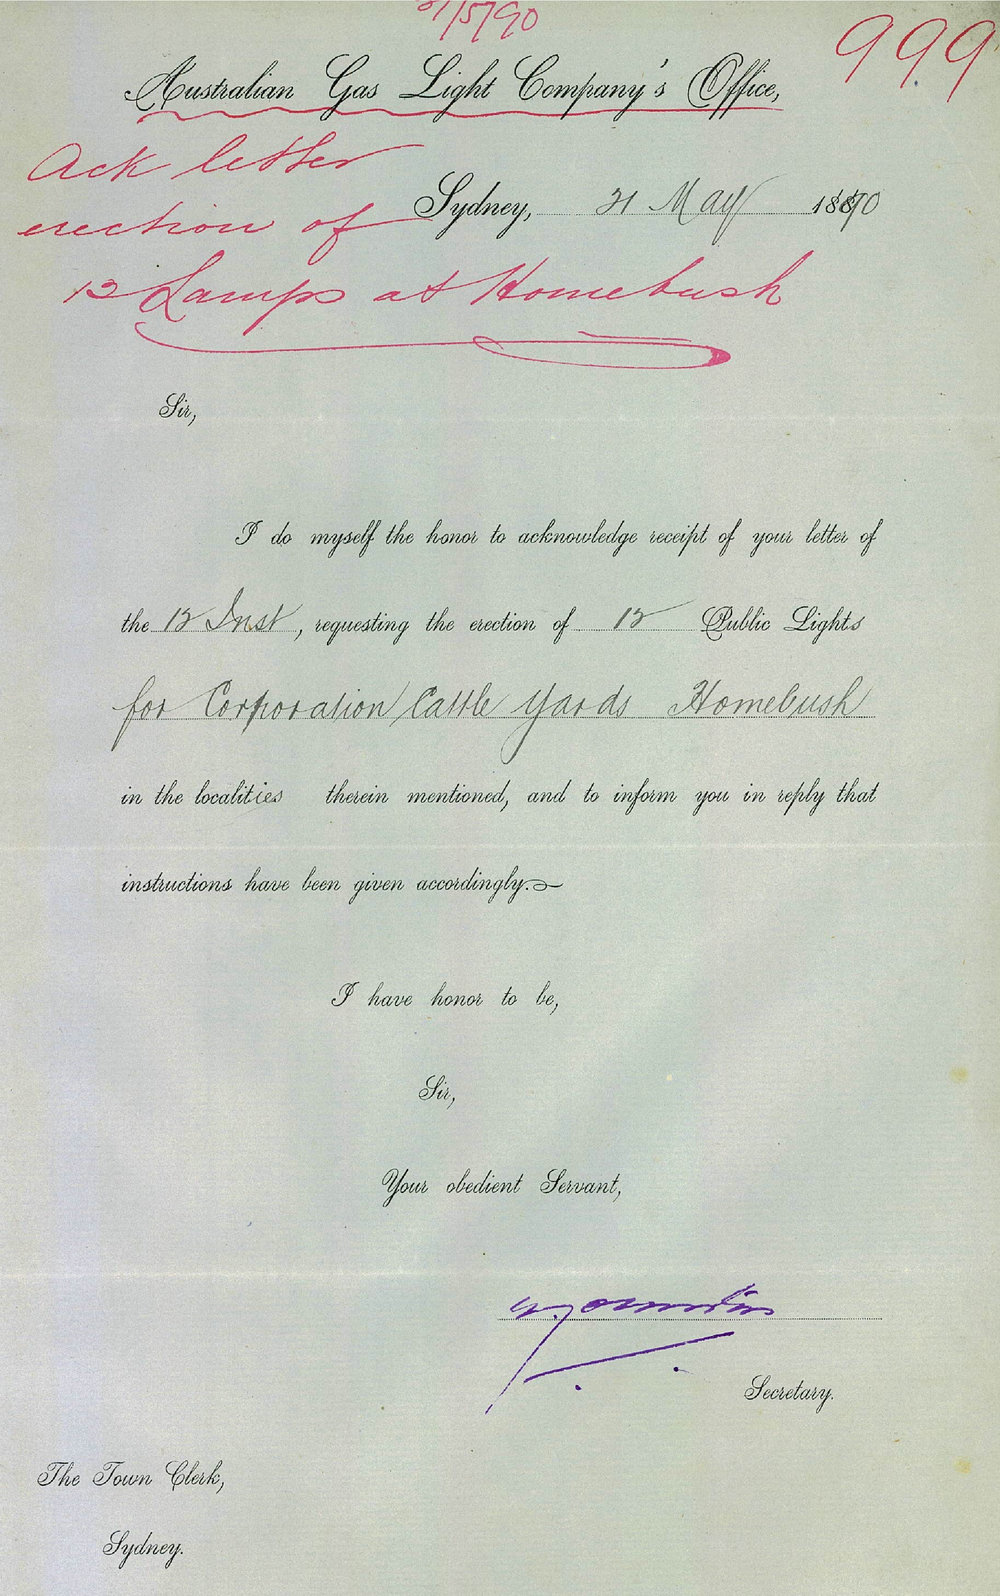 21/5/90
999
Australian Gas Light Company's Office,
Ack letter
erection of
Sydney, 21 May 1890
12 Lamps at Homebush
Sir,
I do myself the honor to acknowledge receipt of your letter of
the 12 Inst, requesting the erection of 12 Public Lights
for Corporation Cattle Yards Homebush
in the localities therein mentioned, and to inform you in reply that
instructions have been given accordingly.
I have honor to be,
Sir,
Your obedient Servant,
Secretary.
The Town Clerk,
Sydney.